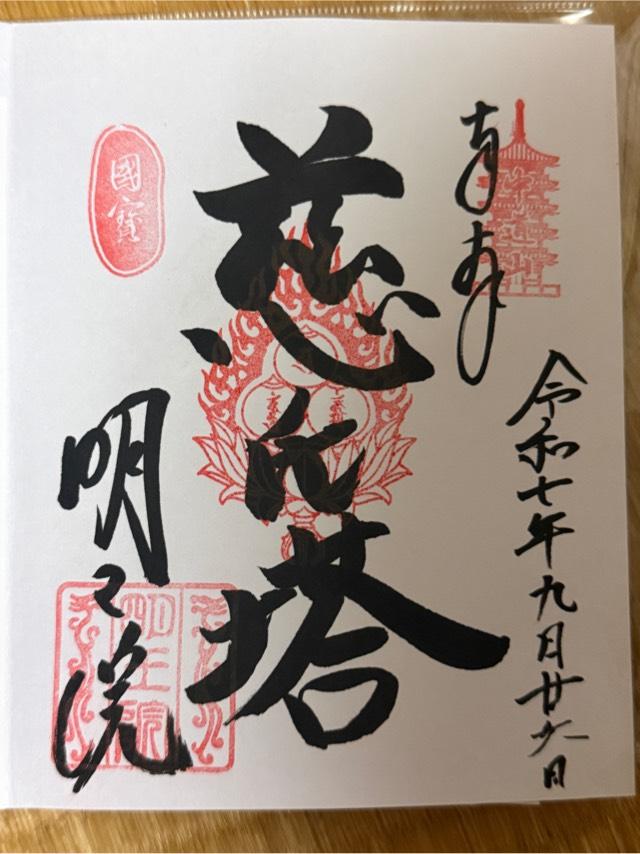 奉拝
令和七年九月廿六日
慈氏塔
國寶
明王院
明王院